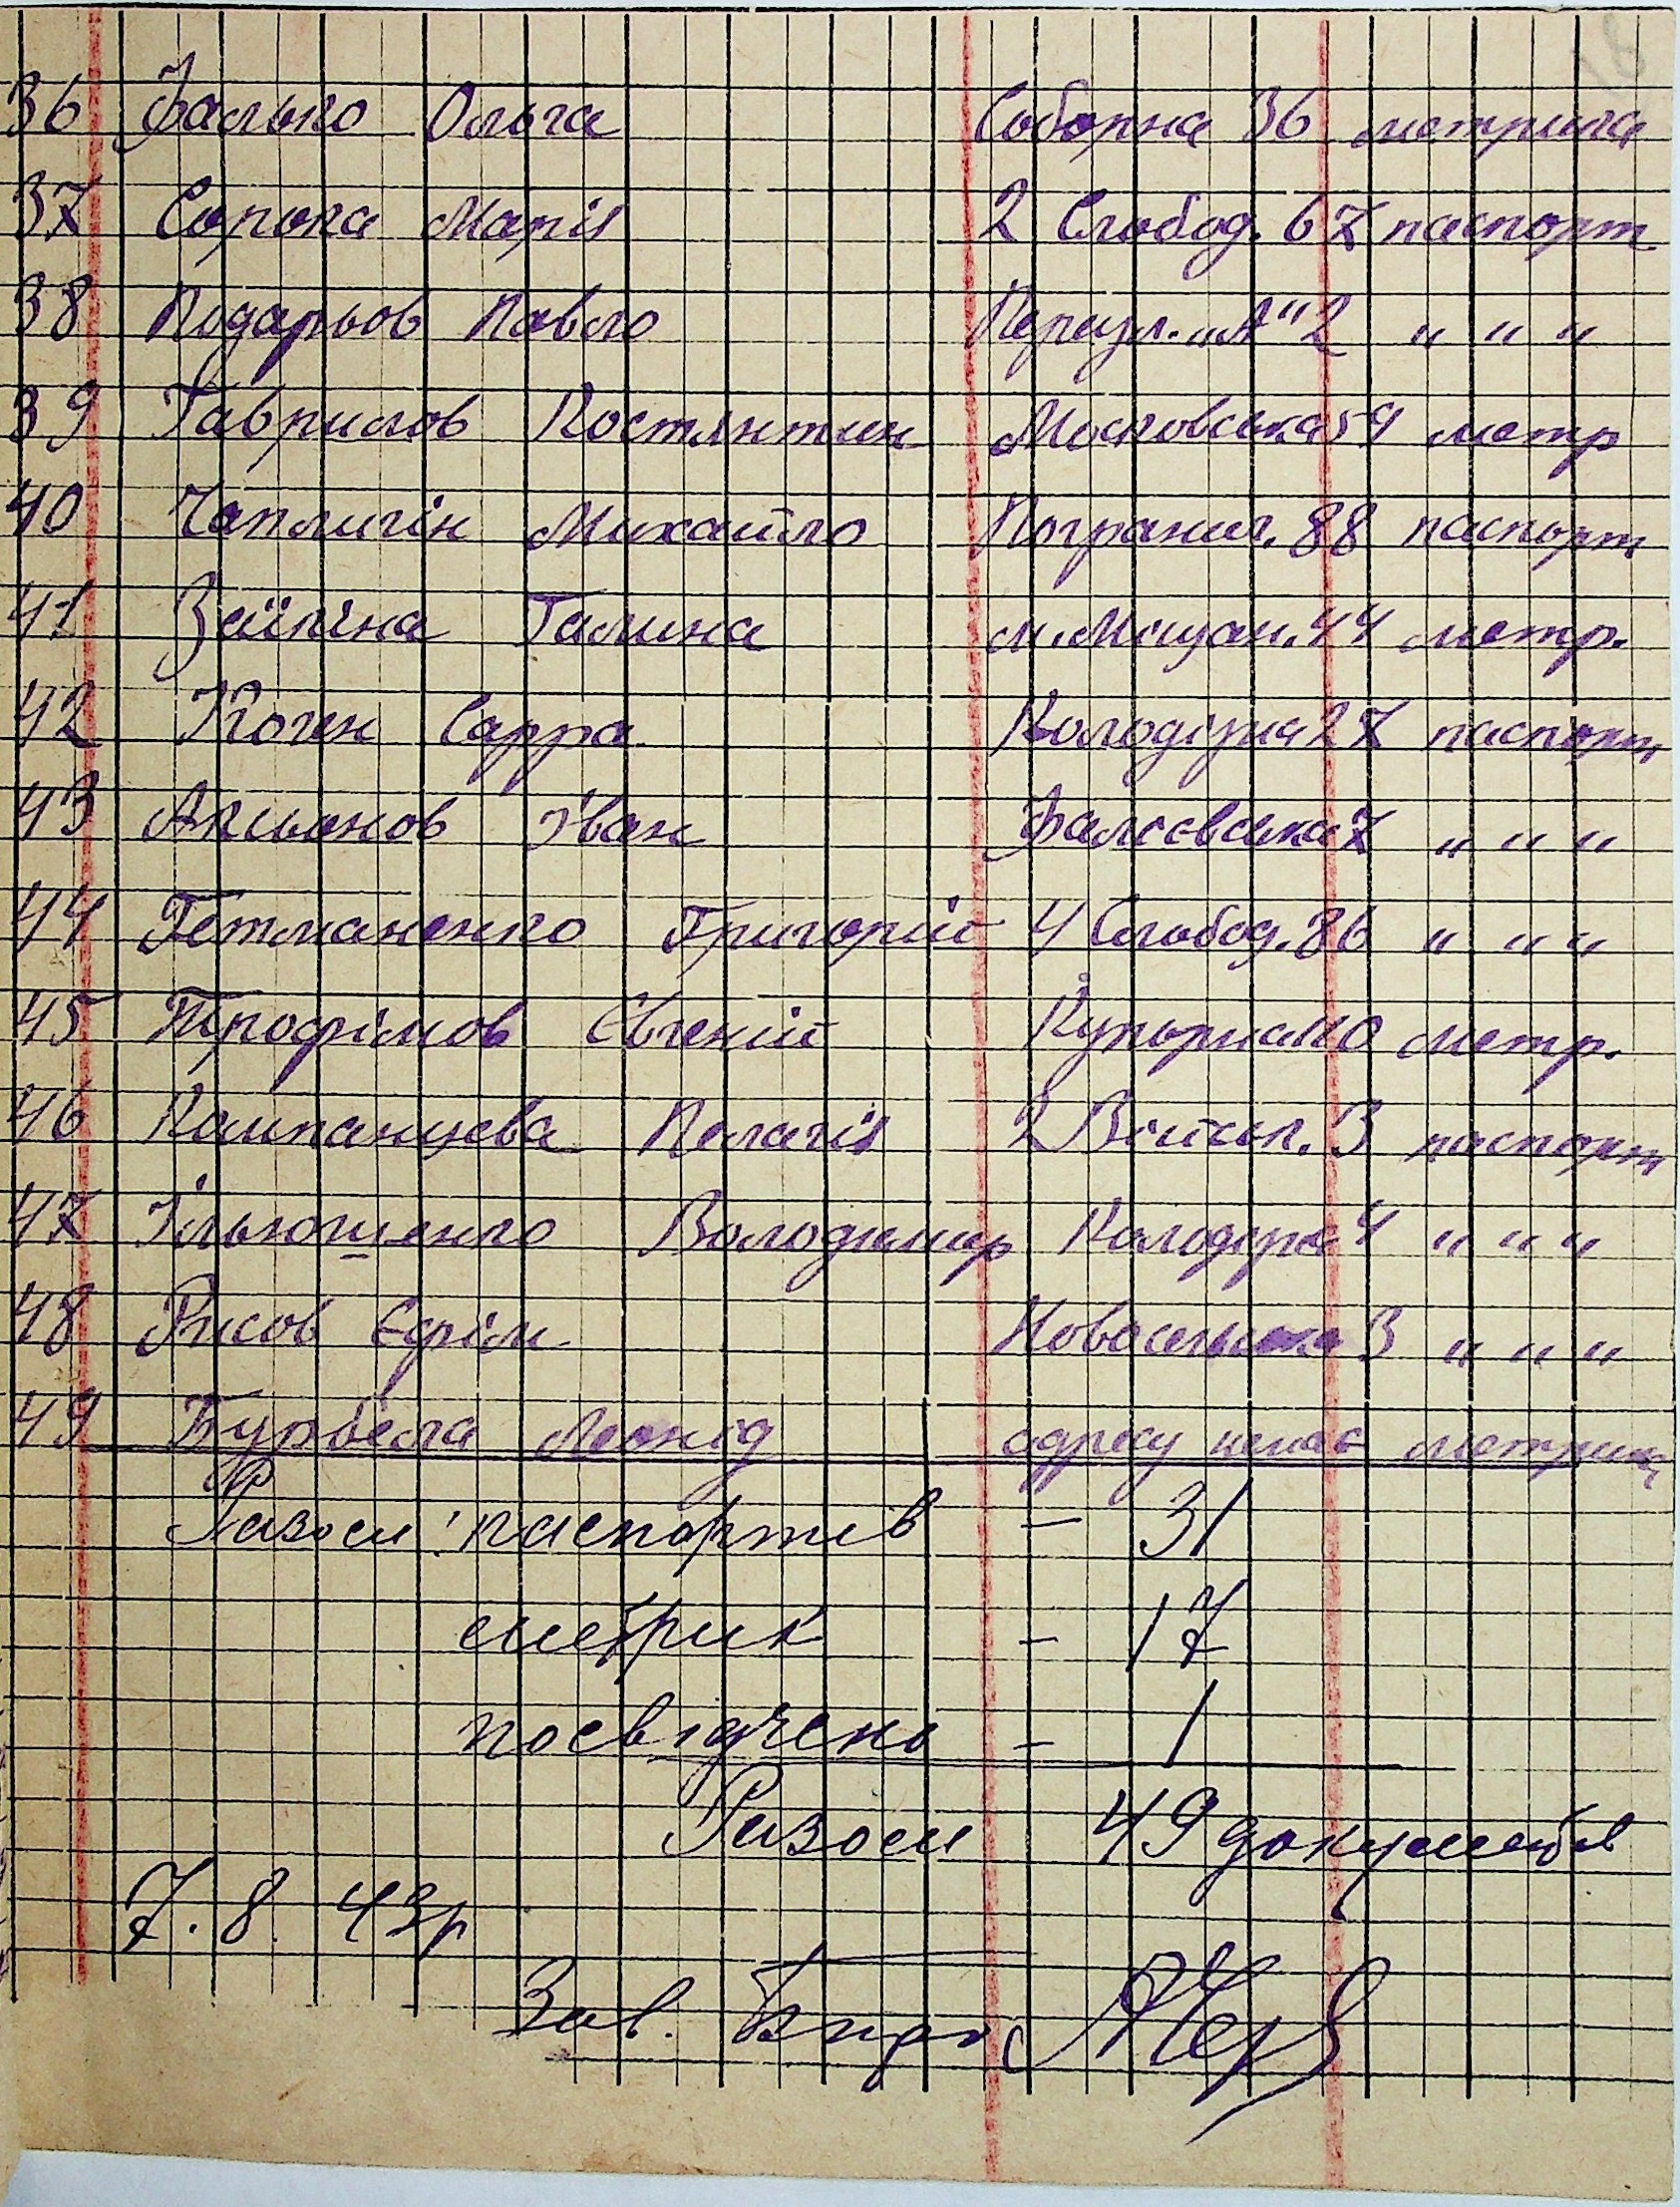 18
36 Фалько Ольга Соборна 36 метрика
37 Сорока Марія 2 Слобод. 67 паспорт
38 Подарьов Павло Переул. „А" 2 " " "
39 Гаврилов Костянтин Московська 59 метр
40 Чаплигін Михайло Погранич. 88 паспорт
41 Заїкіна Галина м. Мещан. 44 метр.
42 Коген Сарра Колодізна 27 паспорт
43 Аксьонов Іван Фалєєвська 7 " " "
44 Гетманенко Григорій 4 Слобод. 86 " " "
45 Трофімов Євгеній Кузнечна 110 метр.
46 Кампанцева Пелагія 2 Військ. 3 паспорт
47 Ільющенко Володимир Колодізна 4 " " "
48 Рисов Єфім Новосельська 3 " " "
49 Бурбела Леонід адресу немає метрика
Разом: паспортів – 31
метрик – 17
посвідчень – 1
Разом 49 документів
7. 8. 43р
Зав. Бюро